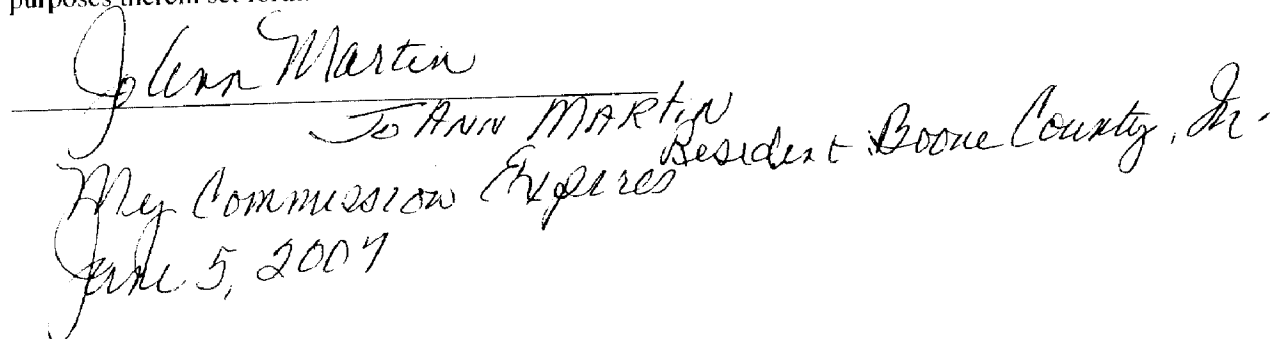 purposes therein set forth.
JoAnn Martin
JoAnn MARtiN
Resident Boone County, In.
My Commission Expires
June 5, 2007